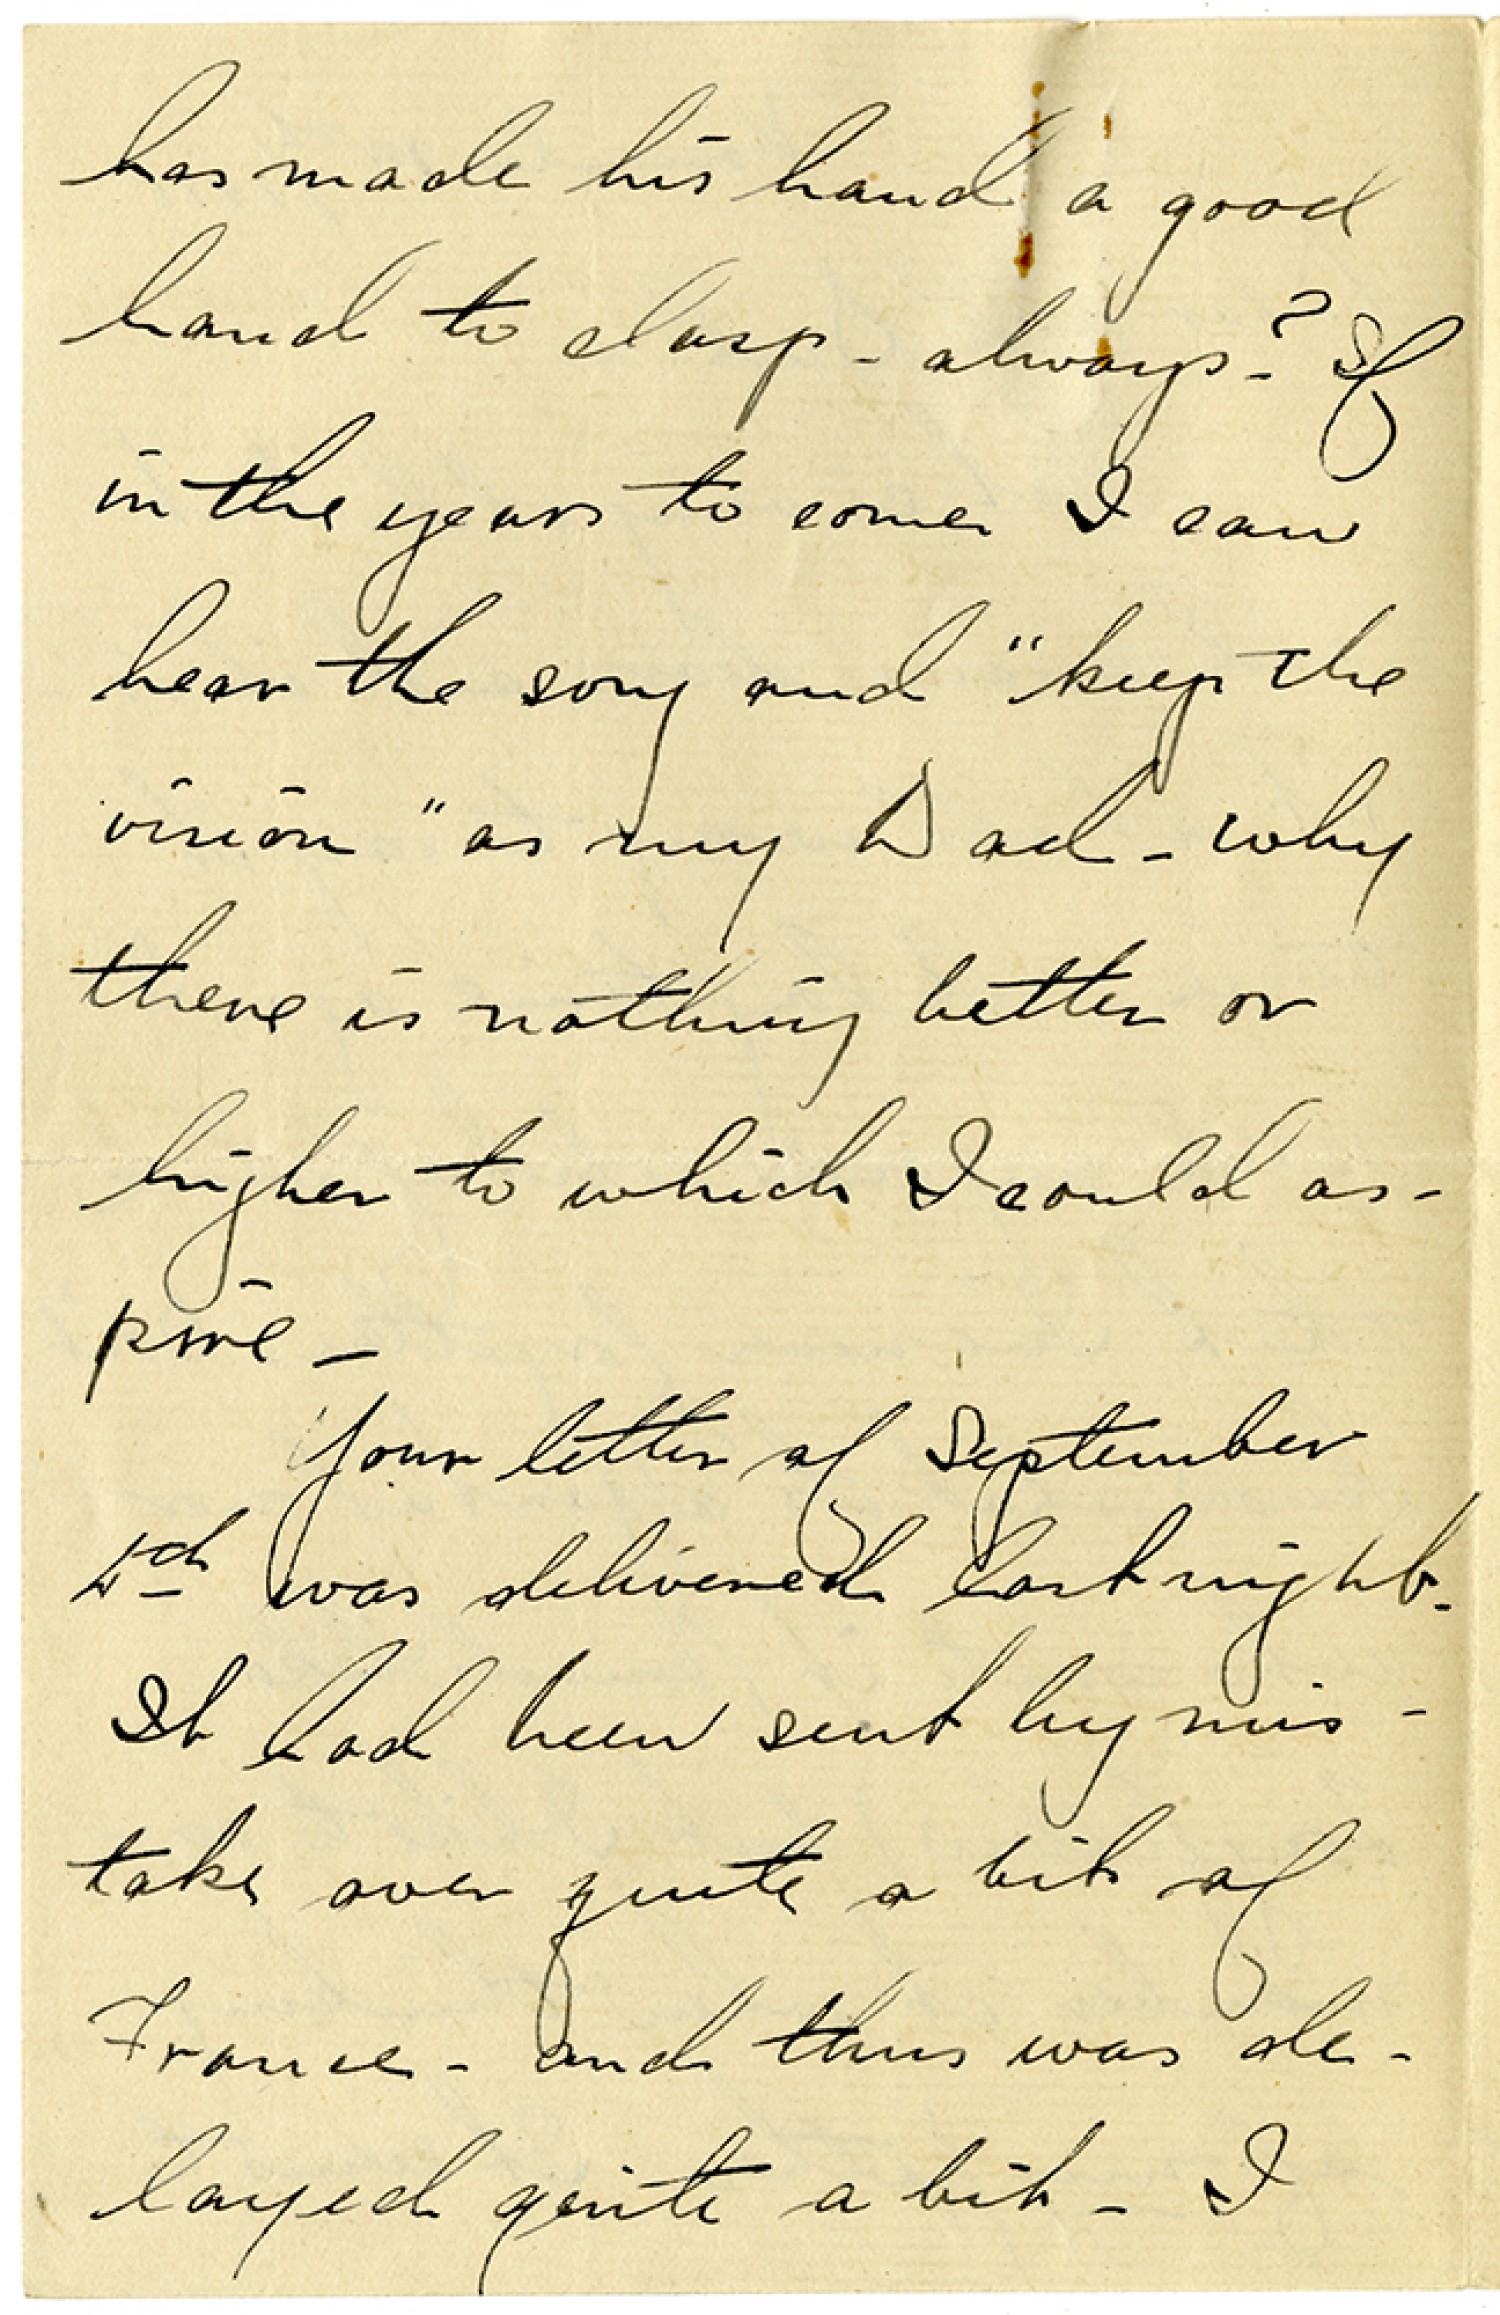 has made his hand a good
hand to clasp - always -? If
in the years to come I can
hear the song and "keep the
vision" as my Dad - why
there is nothing better or
higher to which I could as-
pire -
Your letter of September
was delivered last night.
It had been sent by mis-
take over quite a bit of
France - and thus was de-
layed quite a bit - I